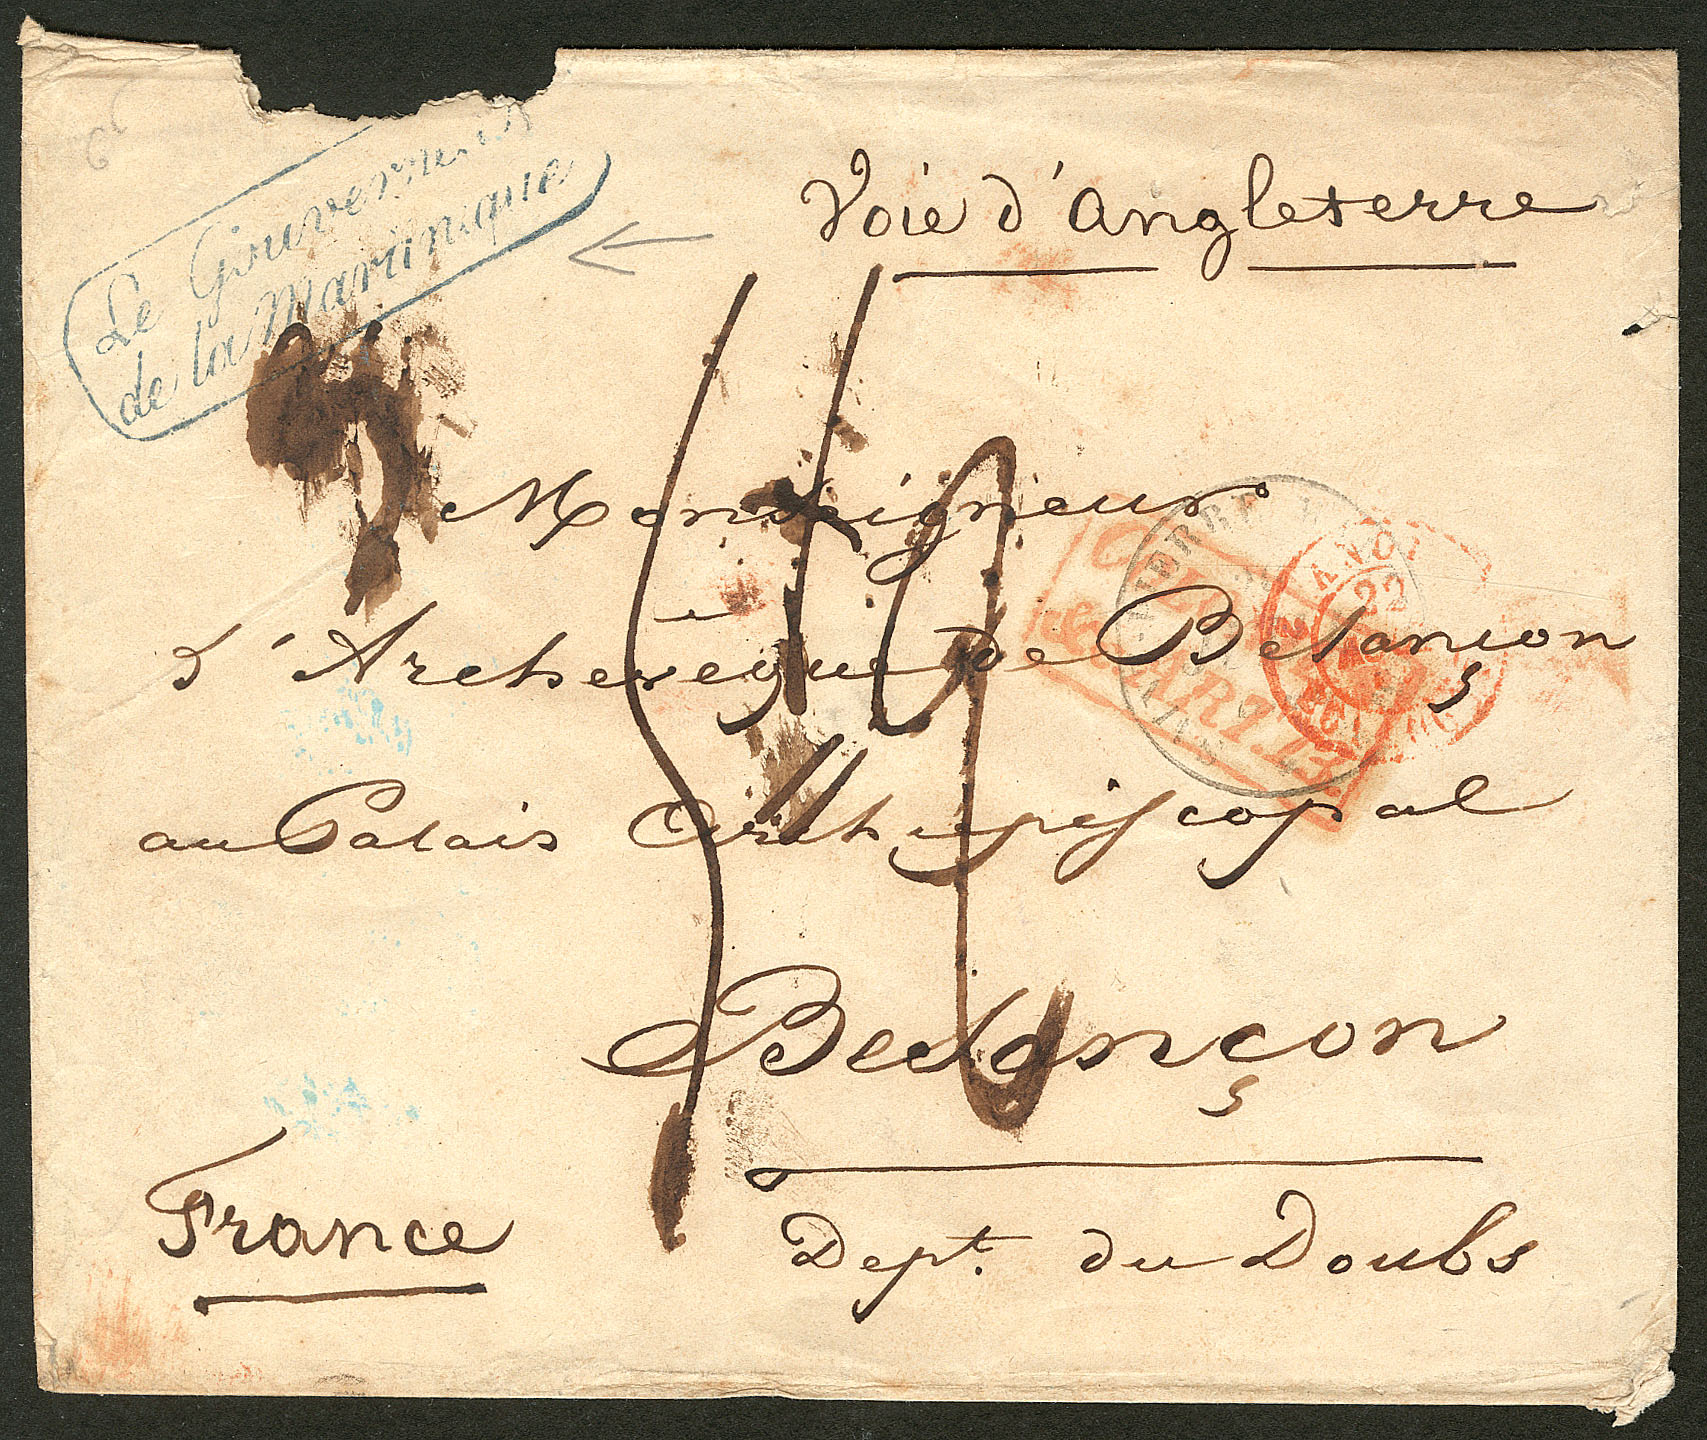 Le Gouverneur
de la Martinique
Voie d'Angleterre
Monseigneur
L'Archevêque de Besançon
au Palais Archiepiscopal
Besançon
France
Dept. du Doubs
COL
& ART. 13
22